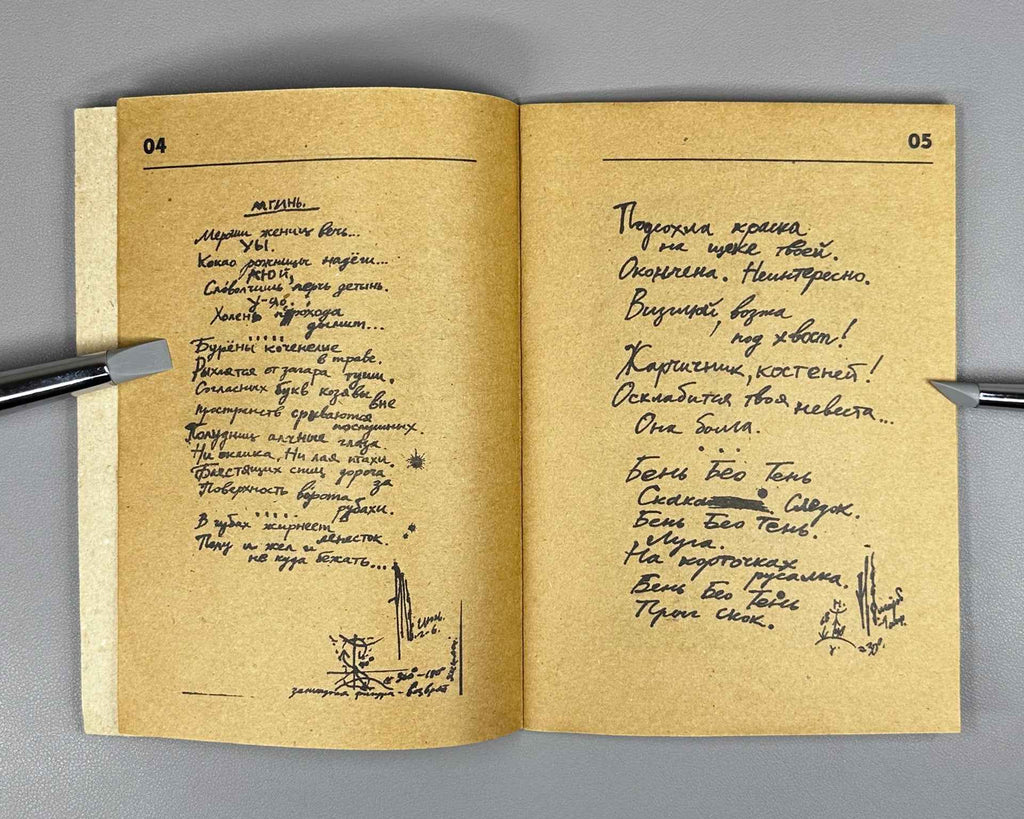 04
мгинь.
жениц вечь...
УЫ.
Какао рожницы надёги...
АЮЙ,
перчь детинь.
У-яб.
Холень прохода
дымит...
.....
Бурёны коченелые
в траве.
Рыхлятся от загара туши.
Согласних букв козявы
вне
пространств срываются
послушных.
Полудниц алчные глаза
Ни оклика, Ни лая птахи.
Блестящих спиц дорога
за
Поверхность ворота
рубахи.
.....
В губах жирнеет
лепесток.
Пану и жел и
не куда бежать...
2-6.
α 360°-180°
фигура - возврат
05
Подсохла краска
на щеке твоей.
Окончена. Неинтересно.
Визглюй, возжа
под хвост!
Жарчичник, костеней!
Осклабится твоя невеста...
Она болла.
...
Бень Бео Тень
Скака Следок.
Бень Бео Тень.
Луга.
На корточках
русалка.
Бень Бео Тень
Прыг скок.